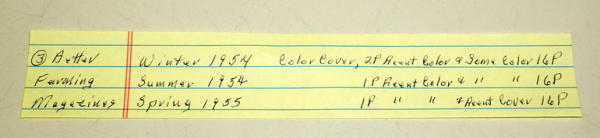 ③ Better Winter 1954 Color Cover, 2P Accent Color & Some Color 16P
Farming Summer 1954 1P Accent Color & " " 16P
Magazines Spring 1955 1P " " & Accent Cover 16P